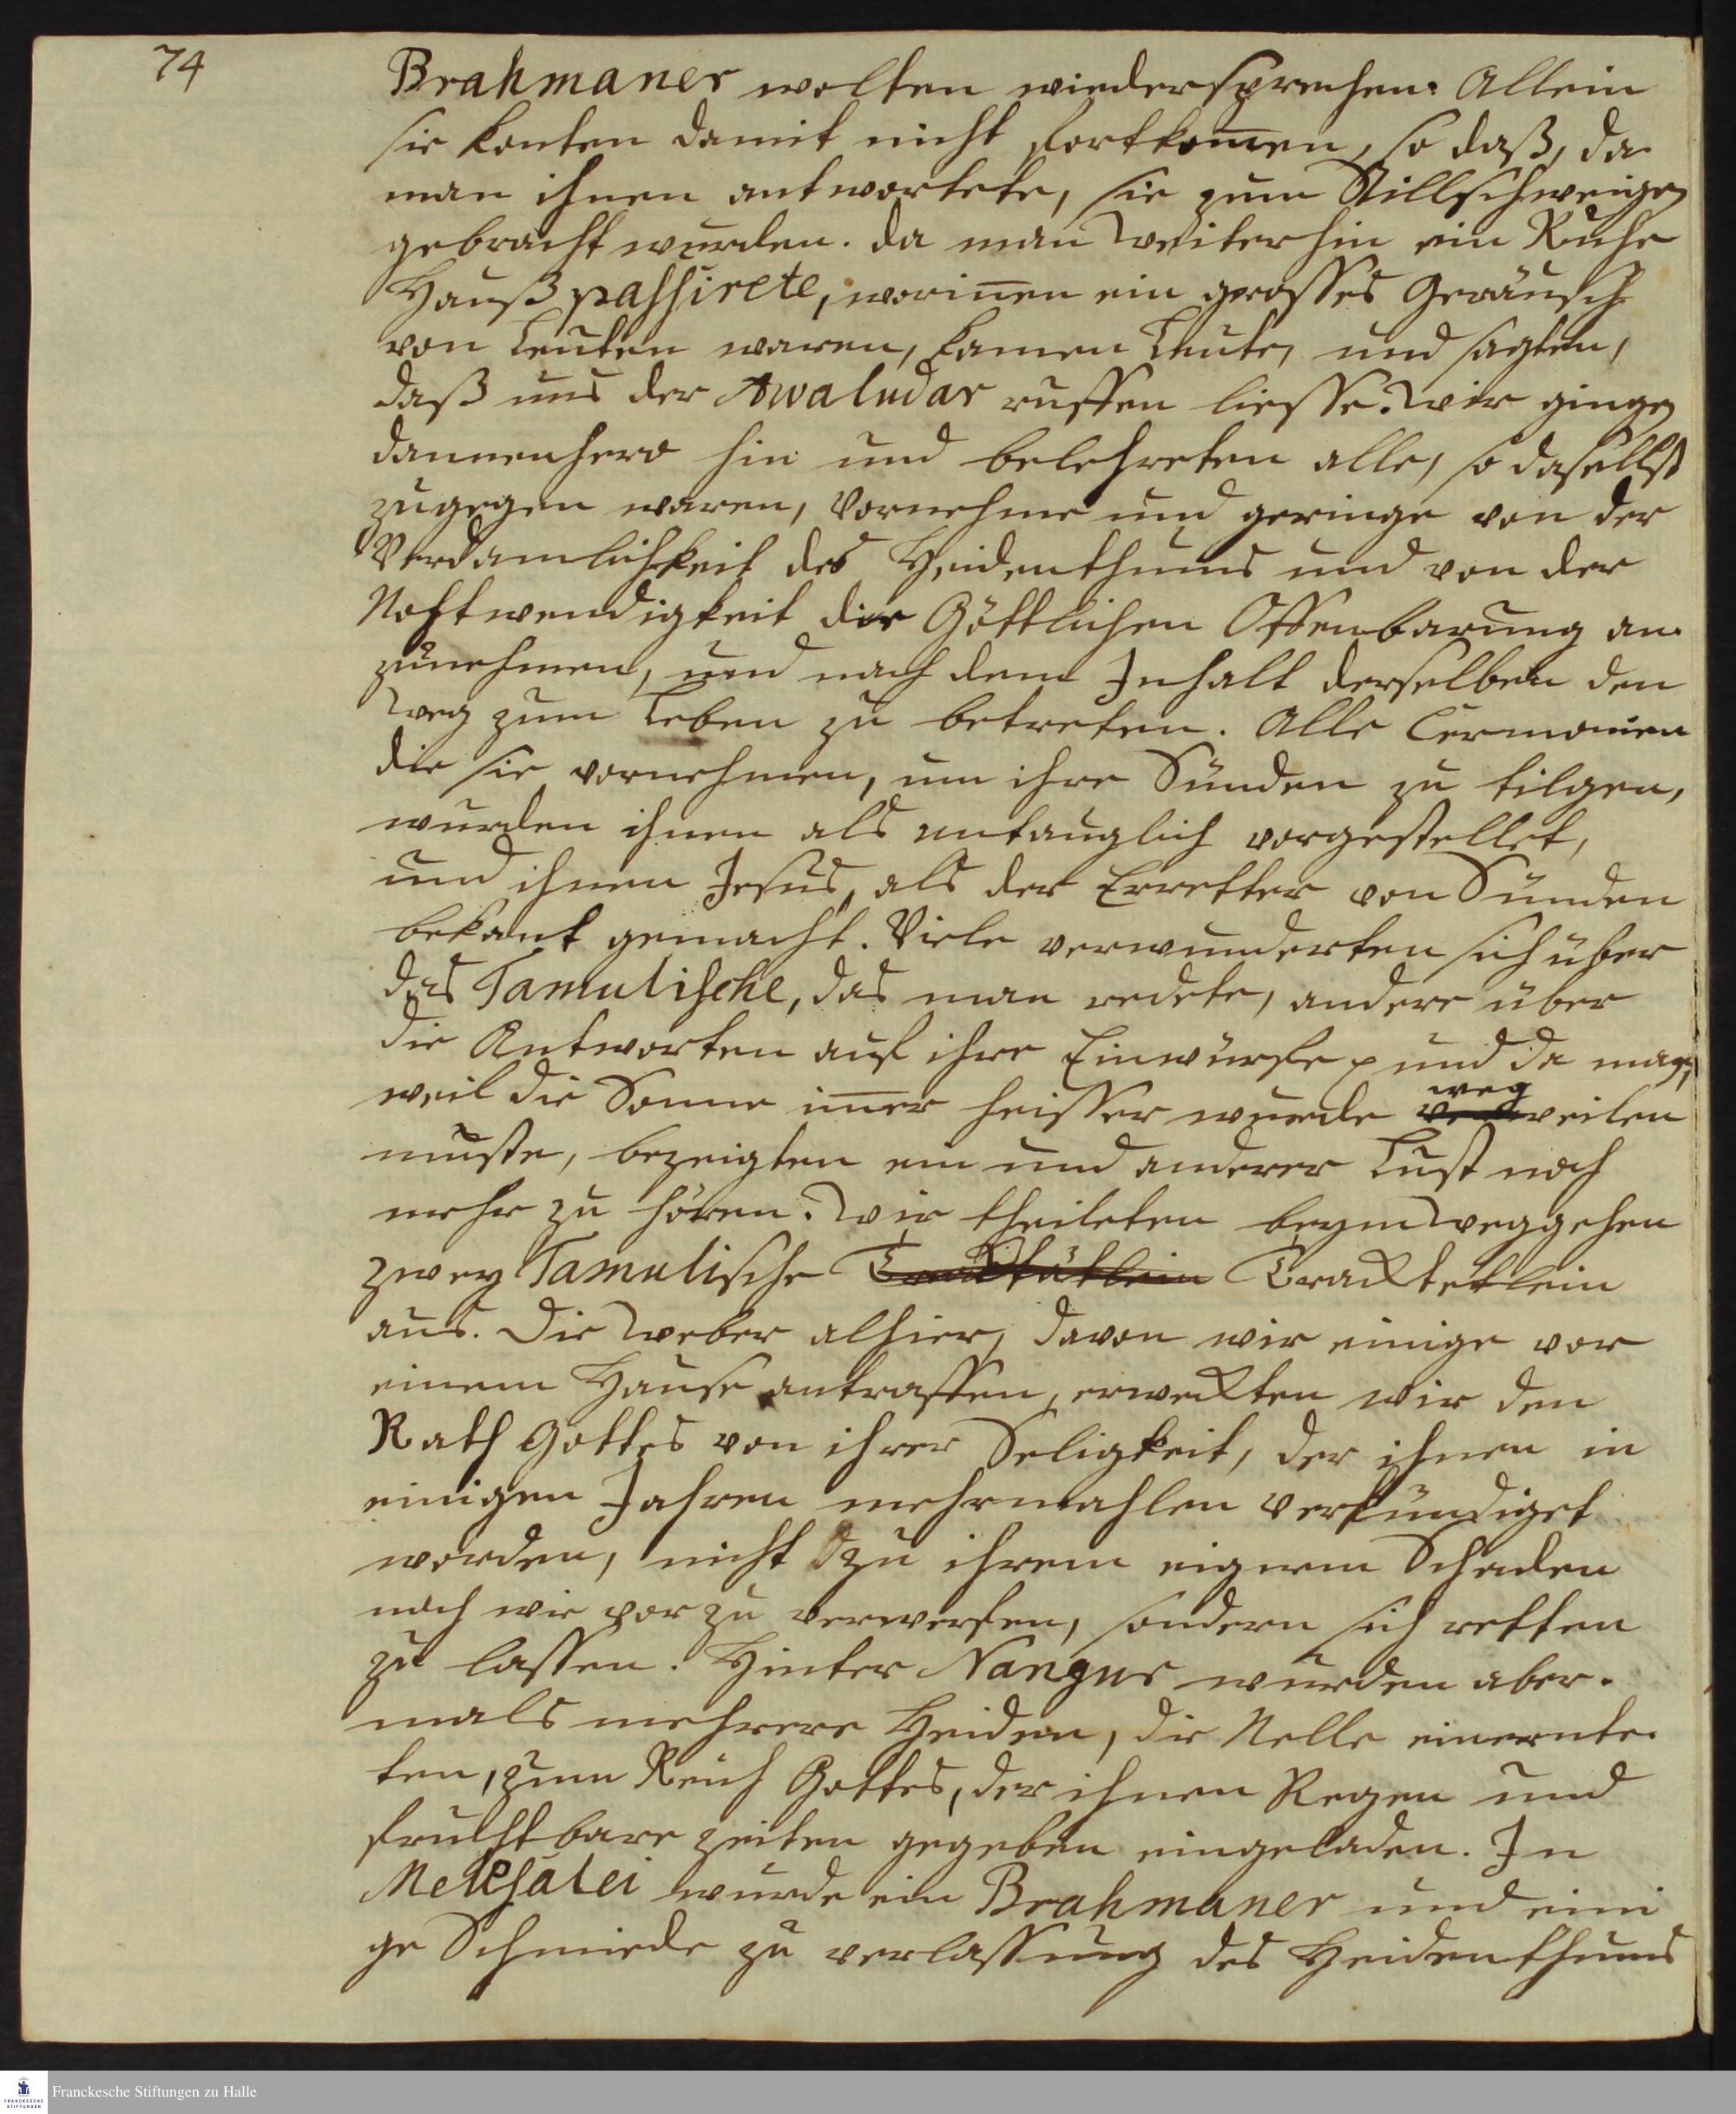 74
Brahmaner wolten wiedersprechen: Allein
sie konten damit nicht fortkom̄en, so daß, da
man ihnen antwortete, sie zum Stillschweigen
gebracht wurden. da man weiterhin ein Ruhe
Hauß passirete, worin̄en ein grosses Geräusch
von Leuten waren, kamen Leute, und sagten,
daß uns der Awaludar ruffen liesse. Wir gingen
dannenhero hin und belehreten alle, so daselbst
zugegen waren, Vornehme und geringe von der
Verdamlichkeit des Heidenthums und von der
Nothwendigkeit die Göttlichen Offenbarung an
zunehmen, und nach dem Inhalt derselben den
Weg zum Leben zu betreten. Alle Cermonien
die sie vornehmen, um ihre Sünden zu tilgen,
wurden ihnen als untauglich vorgestellet,
und ihnen Jesus, als der Erretter von Sünden
bekant gemacht. Viele verwunderten sich über
das Tamulische, das man redete, andere über
die Antworten auf ihre Einwürfe und da man,
weil die Sonne im̄er heisser wurde weg
verweilen
muste, bezeigten ein und anderer Lust noch
mehr zu hören. Wir theileten beym Weggehen
zwey Tamulische Tracktätlein Tracktetlein
aus. Die Weber alhier, davon wir einige vor
einem Hause antraffen, erweckten wir den
Rath Gottes von ihrer Seligkeit, der ihnen in
einigen Jahren mehrmahlen verkündiget
worden, nicht zu ihrem eignem Schaden
nach wie vor zu verwerfen, sondern sich retten
zu lassen. Hinter Nangur wurden aber-
mals mehrere Heiden, die Nelle einernte-
ten, zum Reich Gottes, der ihnen Regen und
fruchtbare Zeiten gegeben eingeladen. In
wurde ein Brahmaner und eini
ge Schmiede zu verlassung des Heidenthums
Franckesche Stiftungen zu Halle
FRANCKESCHE
STIFTUNGEN